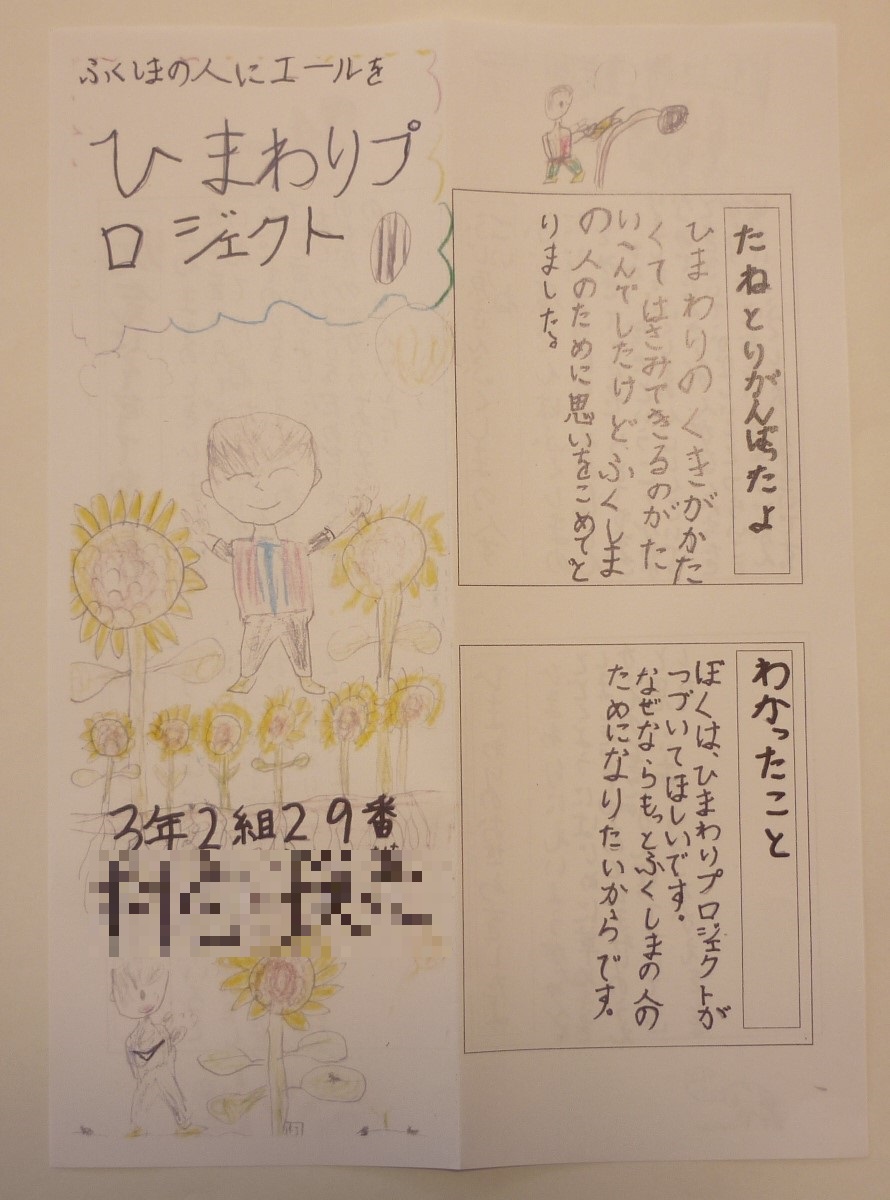 ふくしまの人にエールを
ひまわりプ
ロジェクト
3年2組29番
たねとりがんばったよ
ひまわりのくきがかた
くてはさみできるのがた
いへんでしたけどふくしま
の人のために思いをこめてと
りました。
わかったこと
ぼくは、ひまわりプロジェクトが
つづいてほしいです。
なぜならもっとふくしまの人の
ためになりたいからです。